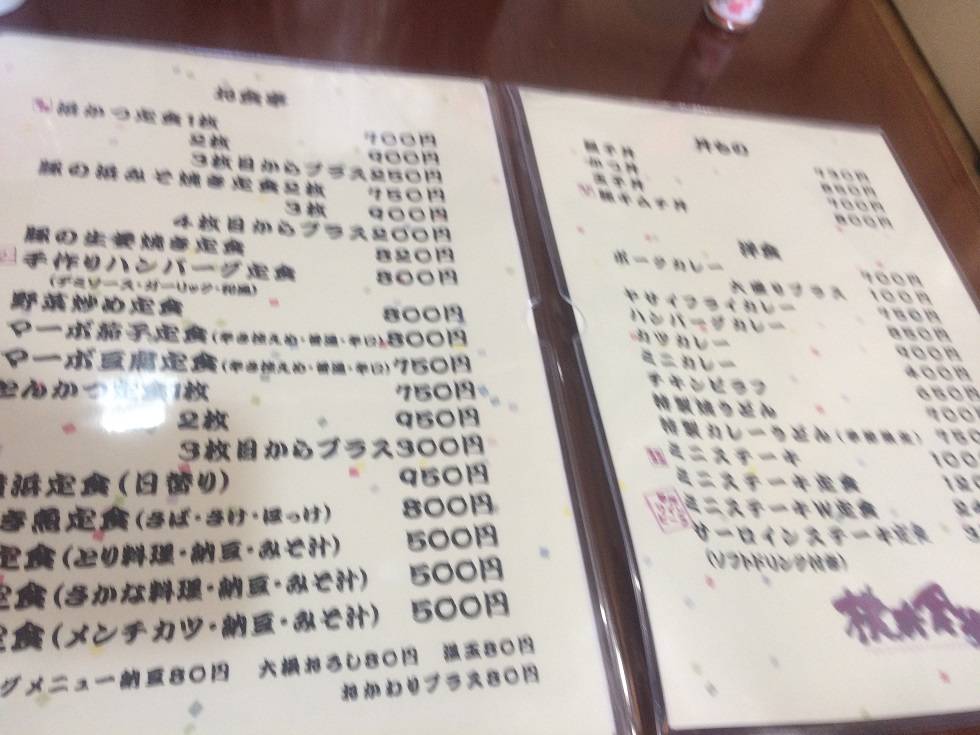 お食事
浜かつ定食1枚 700円
2枚 900円
3枚目からプラス250円
豚の浜みそ焼き定食2枚 750円
3枚 900円
4枚目からプラス200円
豚の生姜焼き定食 820円
手作りハンバーグ定食 800円
(デミソース・ガーリック・和風)
野菜炒め定食 800円
マーボ茄子定食(辛さ控えめ・普通・辛口)800円
マーボ豆腐定食(辛さ控えめ・普通・辛口)750円
とんかつ定食1枚 750円
2枚 950円
3枚目からプラス300円
浜定食(日替り) 950円
き魚定食(さば・さけ・ほっけ) 800円
定食(とり料理・納豆・みそ汁) 500円
定食(さかな料理・納豆・みそ汁) 500円
定食(メンチカツ・納豆・みそ汁) 500円
グメニュー納豆80円 大根おろし80円 温玉80円
おかわりプラス80円
丼もの
親子丼
かつ丼
玉子丼 700円
800円
洋食
ポークカレー 700円
大盛りプラス 100円
ヤサイフライカレー
ハンバーグカレー
カツカレー 900円
ミニカレー 400円
チキンピラフ
特製焼うどん
特製カレーうどん
ミニステーキ
ミニステーキ定食
ミニステーキW定食
サーロインステーキ定食
(ソフトドリンク付き)